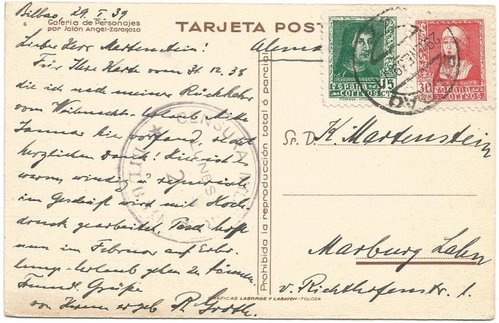 Bilbao 29.I.39
Galería de Personajes
por Jalón Angel-Zaragoza
TARJETA POST
Lieber Herr Martenstein!
Für Ihre Karte vom 31.12.38
die ich nach meiner Rückkehr
vom Weihnachts-Urlaub Mitte
Januar hier vorfand,
herzlichen Dank! Hier ist es
warm, windig u. regnerisch
im Geschäft wird mit Hoch-
druck gearbeitet.
nun im Februar auf Erho-
lungs-Urlaub gehen zu können.
Freundl. Grüße
von Ihrem ergeb. R. Groth.
Prohibida la reproducción total ó parcial
GRÁFICAS LABORDE Y LABAYEN-TOLOSA
15
ESPAÑA
CORREOS
30
ESPAÑA
CORREOS
CENSURA MIL
BILBAO
Sr. D. K. Martenstein
Marburg Lahn
v. Richthofenstr. 1.